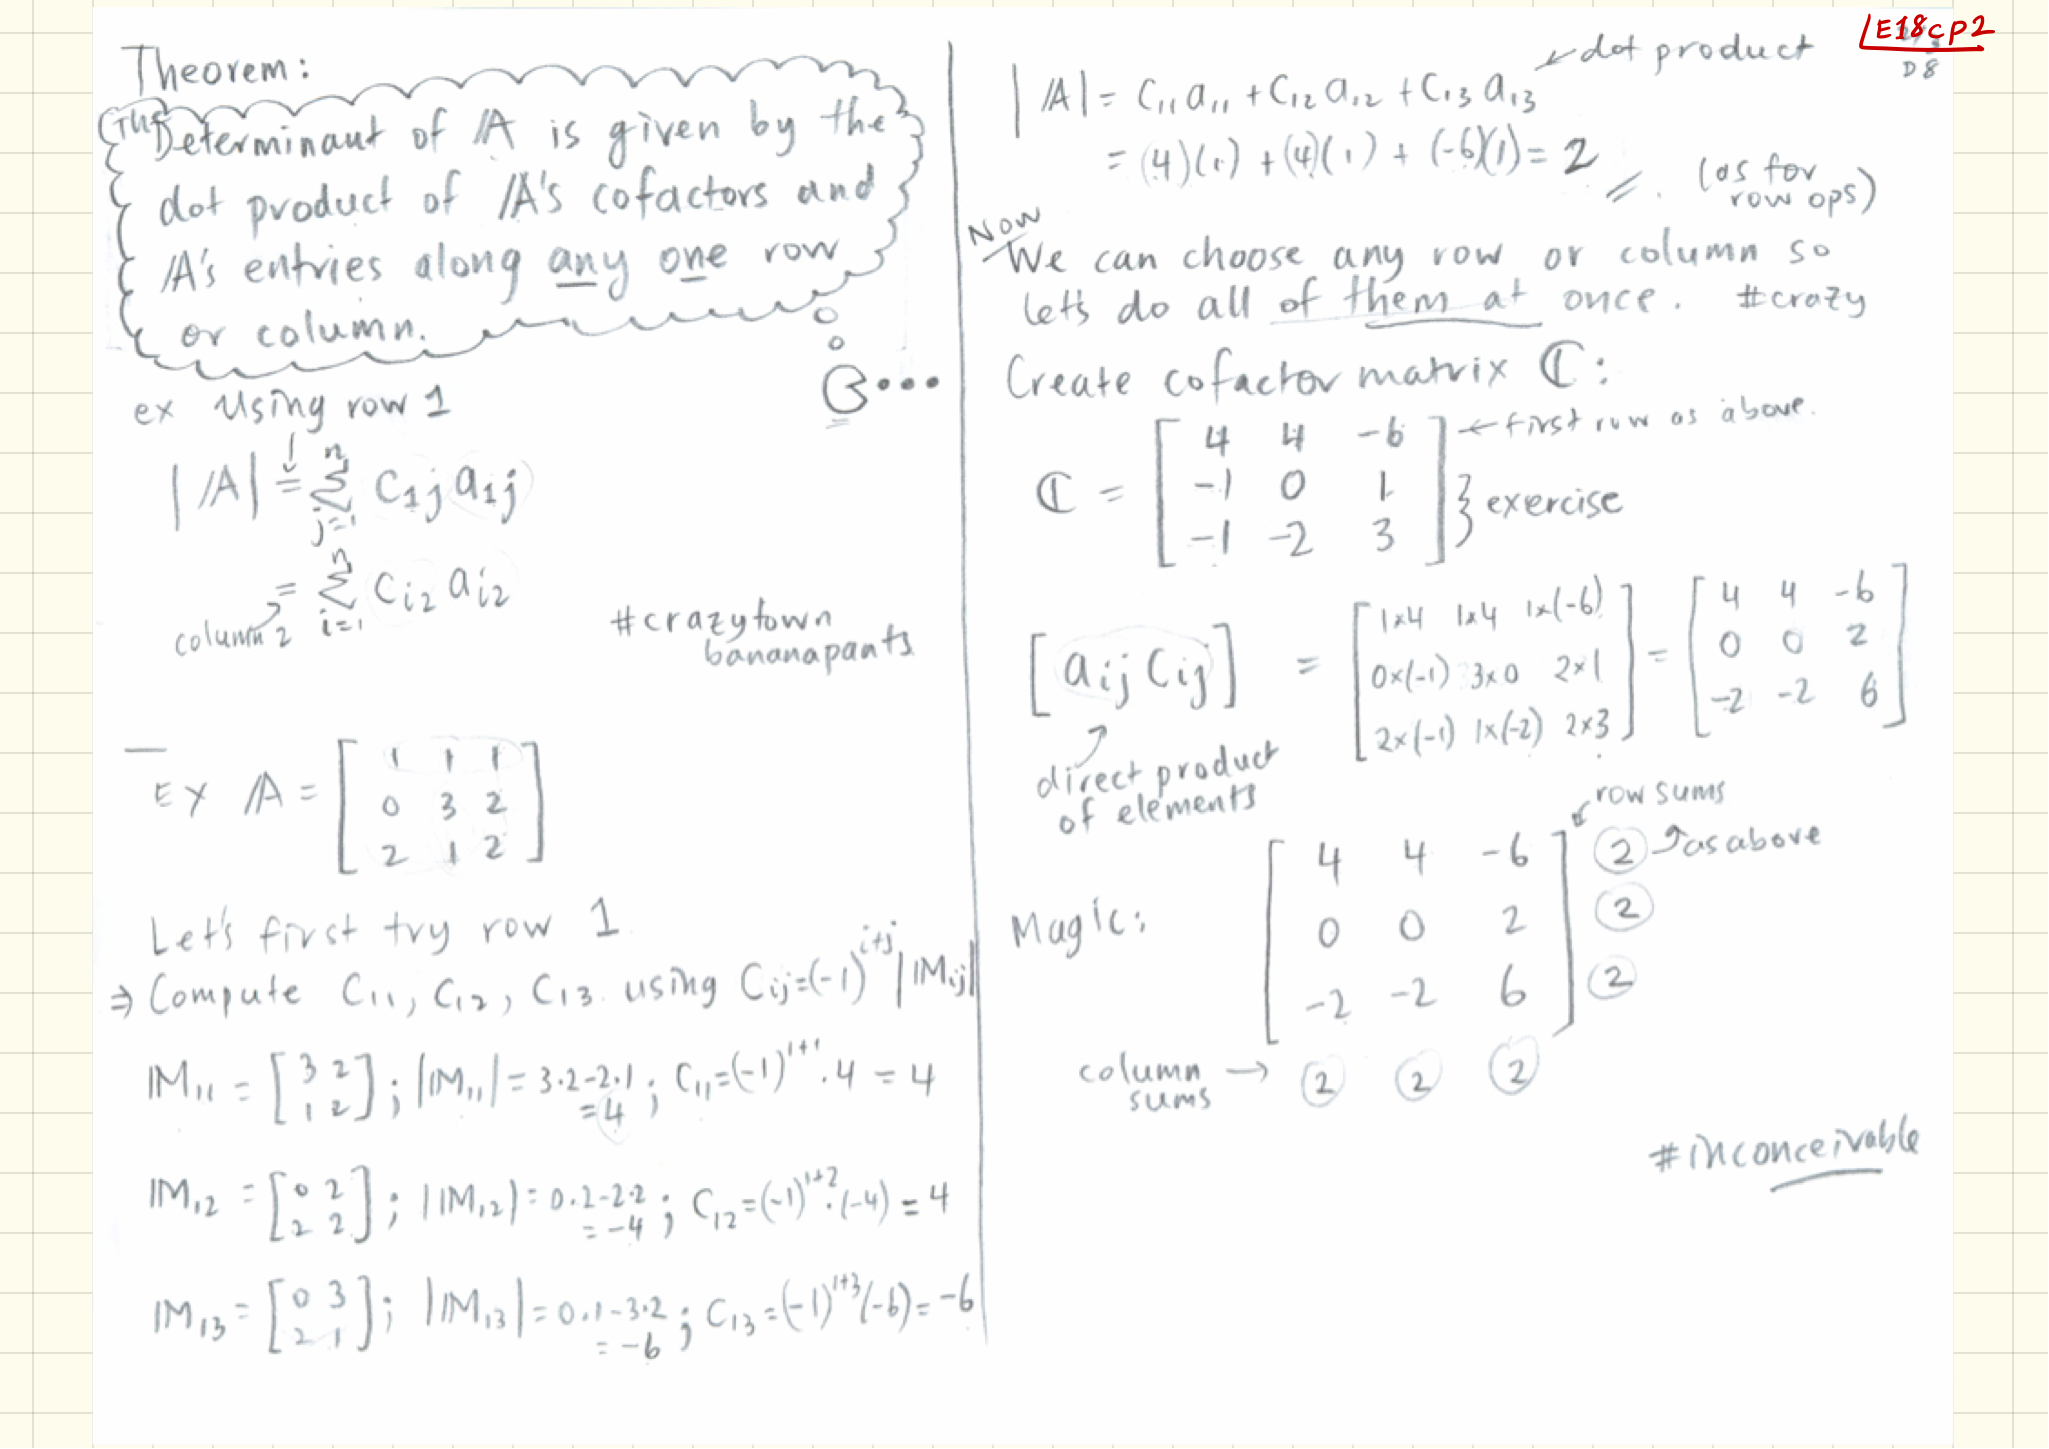 E18cp2
D8
Theorem:
The Determinant of A is given by the
dot product of A's cofactors and
A's entries along any one row
or column.
ex Using row 1
|A| = Σ_{j=1}^{n} C_{1j} a_{1j}
= Σ_{i=1}^{n} C_{i2} a_{i2}
column 2
#crazytown
bananapants
Ex A = [ 1 1 1
0 3 2
2 1 2 ]
Let's first try row 1
⇒ Compute C₁₁, C₁₂, C₁₃ using Cij=(-1)^{i+j} |Mij|
M₁₁ = [ 3 2
1 2 ]; |M₁₁| = 3·2-2·1 = 4; C₁₁=(-1)^{1+1}·4 = 4
M₁₂ = [ 0 2
2 2 ]; |M₁₂| = 0·2-2·2 = -4; C₁₂=(-1)^{1+2}·(-4) = 4
M₁₃ = [ 0 3
2 1 ]; |M₁₃| = 0·1-3·2 = -6; C₁₃=(-1)^{1+3}(-6) = -6
|A| = C₁₁a₁₁ + C₁₂a₁₂ + C₁₃a₁₃ ← dot product
= (4)(1) + (4)(1) + (-6)(1) = 2
(as for
row ops)
Now
We can choose any row or column so
let's do all of them at once. #crazy
Create cofactor matrix C:
C = [ 4 4 -6 ← first row as above.
-1 0 1
-1 -2 3 ] } exercise
[aij Cij] = [ 1x4 1x4 1x(-6)
0x(-1) 3x0 2x1
2x(-1) 1x(-2) 2x3 ] = [ 4 4 -6
0 0 2
-2 -2 6 ]
direct product
of elements
row sums
Magic: [ 4 4 -6 2 as above
0 0 2 2
-2 -2 6 ] 2
column
sums → 2 2 2
#inconceivable